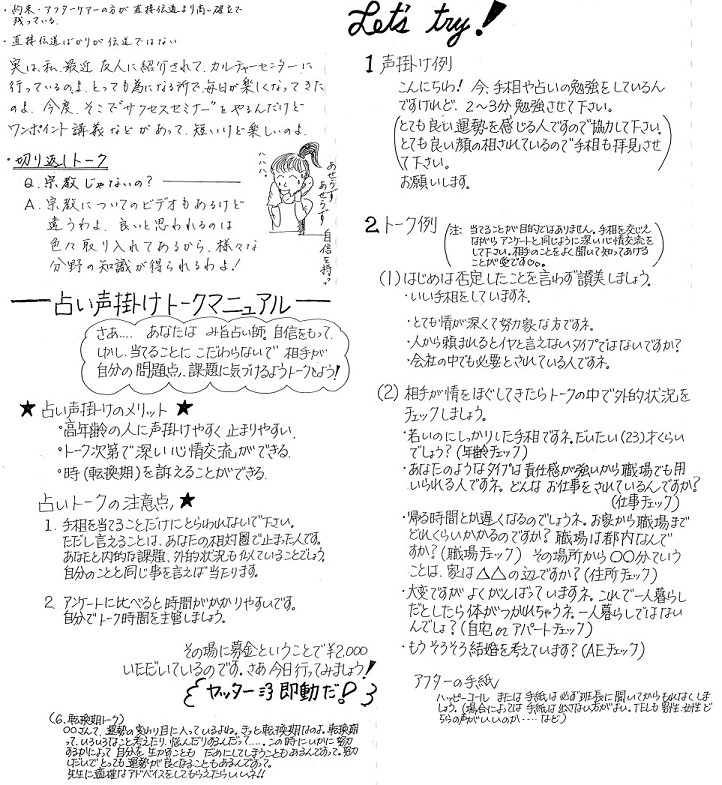 ・約束・アフターケアーの方が直接伝道より高い確立で
残っている。
・直接伝道ばかりが伝道ではない
実は、私、最近友人に紹介されて、カルチャーセンターに
行っているのよ。とっても為になる所で、毎日が楽しくなってきた
のよ。今度、そこで"サクセスセミナー"をやるんだけど
ワンポイント講義などがあって、短いけど楽しいのよ。
・切り返しトーク
Q. 宗教じゃないの?
A. 宗教についてのビデオもあるけど
違うわよ、良いと思われるのは
色々取り入れてあるから、様々な
分野の知識が得られるわよ!
あせらず
あせらず
自信を持つ
占い声掛けトークマニュアル
さぁ.... あなたは み旨占い師。自信をもって、
しかし、当てることに こだわらないで 相手が
自分の問題点、課題に気づけるようトークしよう!
★ 占い声掛けのメリット ★
°高年齢の人に声掛けやすく 止まりやすい。
°トーク次第で深い心情交流ができる。
°時(転換期)を訴えることができる。
占いトークの注意点
1. 手相を当てることだけにとらわれないで下さい。
ただし言えることは、あなたの相対圏で止まった人です。
あなたと内的な課題、外的状況も似ていることでしょう。
自分のことと同じ事を言えば当たります。
2. アンケートに比べると時間がかかりやすいです。
自分でトーク時間を主管しましょう。
その場に募金ということで¥2,000
いただいているのです。さあ今日行ってみましょう!
ヤッター 即動だ!
(6. 転換期トーク)
○○さんて、運勢の変わり目に入っているよね。きっと転換期なのよ。転換期
って、いろいろなこと考えたり、悩んだりするんだって.... この時にいかに努力
するかによって 自分を生かすことも だめにしてしまうこともあるんであって。努力
しだいでとっても運勢が良くなることもあるんであって。
先生に適確なアドバイスをしてもらえたらいいネ!!
Let's try!
1 声掛け例
こんにちわ! 今、手相や占いの勉強をしているん
ですけれど、2〜3分勉強させて下さい。
(とても良い運勢を感じる人ですので協力して下さい。
とても良い顔の相されているので手相も拝見させ
て下さい。)
お願いします。
2 トーク例
(注: 当てることが目的ではありません。手相を交じえ
ながらアンケートと同じように深い心情交流を
して下さい。相手のことをよく聞いて知ってあげる
ことが愛です。)
(1) はじめは否定したことを言わず讃美しましょう。
・いい手相をしていますネ。
・とても情が深くて努力家な方ですネ。
・人から頼まれるとイヤと言えないタイプではないですか?
・会社の中でも必要とされている人ですネ。
(2) 相手が情をほぐしてきたらトークの中で外的状況を
チェックしましょう。
・若いのにしっかりした手相ですネ。だいたい(23)才くらい
でしょう? (年齢チェック)
・あなたのようなタイプは責任感が強いから職場でも用
いられる人ですネ。どんなお仕事をされているんですか?
(仕事チェック)
・帰る時間とか遅くなるのでしょうネ。お家から職場まで
どれくらいかかるのですか? 職場は都内なんで
すか? (職場チェック) その場所から○○分ていう
ことは、家は△△の辺ですか? (住所チェック)
・大変ですが よくがんばっていますネ。これで一人暮らし
だとしたら体がつかれちゃうネ。一人暮らしではない
んでしょ? (自宅 or アパートチェック)
・もうそろそろ結婚を考えています? (AEチェック)
アフターの手紙
ハッピーコール または 手紙は必ず班長に聞いてからもれなくしま
しょう。(場合によっては 手紙は出さない方がよい。TELも男性・女性ど
ちらの声がいいのか.... など)